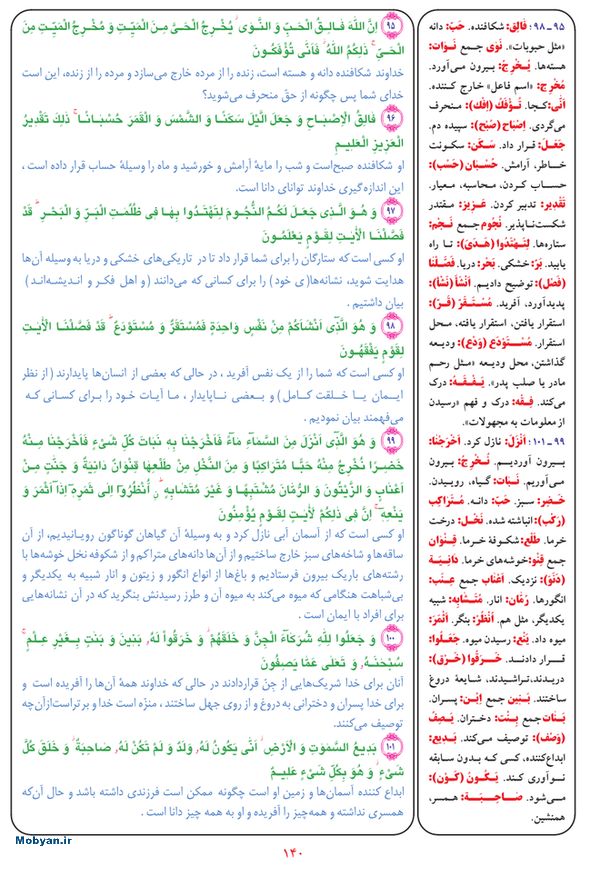 ۹۵ـ۹۸: فالِق: شکافنده. حَبّ: دانه
«مثل حبوبات». نَوی جمع نَوات:
هسته‌ها. یُخْرِجُ: بیرون می‌آورد.
مُخْرِج: «اسم فاعل» خارج کننده.
اَنّی: کجا. تُؤْفَکُ (اِفْك): منحرف
می‌گردی. اِصْباح (صُبْح): سپیده دم.
جَعَلَ: قرار داد. سَکَن: سکونت
خاطر، آرامش. حُسْبان (حَسْب):
حساب کردن، محاسبه، معیار.
تَقْدِیر: تدبیر کردن. عَزِیز: مقتدر
شکست‌ناپذیر. نُجُوم جمع نَجْم:
ستاره‌ها. لِتَهْتَدُوا (هَدْی): تا راه
یابید. بَرّ: خشکی. بَحْر: دریا. فَصَّلْنا
(فَصْل): توضیح دادیم. اَنْشَأَ (نَشْأ):
پدیدآورد، آفرید. مُسْتَقَرّ (قَرّ):
استقرار یافتن، استقرار یافته، محل
استقرار. مُسْتَوْدَع (وَدْع): ودیعه
گذاشتن، محل ودیعه «مثل رحم
مادر یا صلب پدر». یَفْقَهُ: درک
می‌کند. فِقْه: درک و فهم «رسیدن
از معلومات به مجهولات».
۹۹ـ۱۰۱: اَنْزَلَ: نازل کرد. اَخْرَجْنا:
بیرون آوردیم. نُخْرِجُ: بیرون
می‌آوریم. نَبات: گیاه، روییدن.
خَضِر: سبز. حَبّ: دانه. مُتَراکِب
(رَکْب): انباشته شده. نَخْل: درخت
خرما. طَلْع: شکوفهٔ خرما. قِنْوان
جمع قِنْو: خوشه‌های خرما. دانِیَة
(دُنُوّ): نزدیک. اَعْناب جمع عِنَب:
انگورها. رُمّان: انار. مُتَشابِه: شبیه
یکدیگر، مثل هم. اُنْظُرْ: بنگر. اَثْمَرَ:
میوه داد. یَنْع: رسیدن میوه. جَعَلُوا:
قرار دادند. خَرَقُوا (خَرْق):
دریدند.تراشیدند، شایعهٔ دروغ
ساختند. بَنِین جمع اِبْن: پسران.
بَنات جمع بِنْت: دختران. یَصِفُ
(وَصْف): توصیف می‌کند. بَدِیع:
ابداع‌کننده، کسی که بدون سابقه
نوآوری کند. یَکُونُ (کَوْن):
می‌شود. صاحِبَة: همسر،
همنشین.
۹۵ اِنَّ اللهَ فَالِقُ الْحَبِّ وَ النَّوٰی ۖ یُخْرِجُ الْحَیَّ مِنَ الْمَیِّتِ وَ مُخْرِجُ الْمَیِّتِ مِنَ
الْحَیِّ ۚ ذٰلِکُمُ اللهُ ۖ فَاَنّٰی تُؤْفَکُونَ
خداوند شکافنده دانه و هسته است، زنده را از مرده خارج می‌سازد و مرده را از زنده، این است
خدای شما پس چگونه از حق منحرف می‌شوید؟
۹۶ فَالِقُ الْاِصْبَاحِ وَ جَعَلَ الَّیْلَ سَکَنًا وَ الشَّمْسَ وَ الْقَمَرَ حُسْبَانًا ۚ ذٰلِکَ تَقْدِیرُ
الْعَزِیزِ الْعَلِیمِ
او شکافنده صبح‌است و شب را مایهٔ آرامش و خورشید و ماه را وسیلهٔ حساب قرار داده است ،
این اندازه‌گیری خداوند توانای دانا است .
۹۷ وَ هُوَ الَّذِی جَعَلَ لَکُمُ النُّجُومَ لِتَهْتَدُوا بِهَا فِی ظُلُمٰتِ الْبَرِّ وَ الْبَحْرِ ۗ قَدْ
فَصَّلْنَا الْاٰیٰتِ لِقَوْمٍ یَعْلَمُونَ
او کسی است که ستارگان را برای شما قرار داد تا در تاریکی‌های خشکی و دریا به وسیله آن‌ها
هدایت شوید، نشانه‌ها(ی خود ) را برای کسانی که می‌دانند ( و اهل فکر و اندیشه‌اند )
بیان داشتیم .
۹۸ وَ هُوَ الَّذِی اَنْشَاَکُمْ مِنْ نَفْسٍ وَاحِدَةٍ فَمُسْتَقَرٌّ وَ مُسْتَوْدَعٌ ۗ قَدْ فَصَّلْنَا الْاٰیٰتِ
لِقَوْمٍ یَفْقَهُونَ
او کسی است که شما را از یک نفس آفرید ، در حالی که بعضی از انسان‌ها پایدارند ( از نظر
ایمان یا خلقت کامل ) و بعضی ناپایدار ، ما آیات خود را برای کسانی که
می‌فهمند بیان نمودیم .
۹۹ وَ هُوَ الَّذِی اَنْزَلَ مِنَ السَّمَاءِ مَاءً فَاَخْرَجْنَا بِهِ نَبَاتَ کُلِّ شَیْءٍ فَاَخْرَجْنَا مِنْهُ
خَضِرًا نُخْرِجُ مِنْهُ حَبًّا مُتَرَاکِبًا وَ مِنَ النَّخْلِ مِنْ طَلْعِهَا قِنْوَانٌ دَانِیَةٌ وَ جَنّٰتٍ مِنْ
اَعْنَابٍ وَ الزَّیْتُونَ وَ الرُّمَّانَ مُشْتَبِهًا وَ غَیْرَ مُتَشَابِهٍ ۗ اُنْظُرُوا اِلٰی ثَمَرِهِ اِذَا اَثْمَرَ وَ
یَنْعِهِ ۚ اِنَّ فِی ذٰلِکُمْ لَاٰیٰتٍ لِقَوْمٍ یُؤْمِنُونَ
او کسی است که از آسمان آبی نازل کرد و به وسیلهٔ آن گیاهان گوناگون رویانیدیم، از آن
ساقه‌ها و شاخه‌های سبز خارج ساختیم و از آن‌ها دانه‌های متراکم و از شکوفه نخل خوشه‌ها با
رشته‌های باریک بیرون فرستادیم و باغ‌ها از انواع انگور و زیتون و انار شبیه به یکدیگر و
بی‌شباهت هنگامی که میوه می‌کند به میوه آن و طرز رسیدنش بنگرید که در آن نشانه‌هایی
برای افراد با ایمان است .
۱۰۰ وَ جَعَلُوا لِلّٰهِ شُرَکَاءَ الْجِنَّ وَ خَلَقَهُمْ ۖ وَ خَرَقُوا لَهُ بَنِینَ وَ بَنٰتٍ بِغَیْرِ عِلْمٍ ۚ
سُبْحٰنَهُ وَ تَعٰلٰی عَمَّا یَصِفُونَ
آنان برای خدا شریک‌هایی از جِنّ قراردادند در حالی که خداوند همه آن‌ها را آفریده است و
برای خدا پسران و دخترانی به دروغ و از روی جهل ساختند ، منزّه است خدا و برتراست‌ازآن‌چه
توصیف می‌کنند.
۱۰۱ بَدِیعُ السَّمٰوٰتِ وَ الْاَرْضِ ۖ اَنّٰی یَکُونُ لَهُ وَلَدٌ وَ لَمْ تَکُنْ لَهُ صَاحِبَةٌ ۖ وَ خَلَقَ کُلَّ
شَیْءٍ ۖ وَ هُوَ بِکُلِّ شَیْءٍ عَلِیمٌ
ابداع کننده آسمان‌ها و زمین او است چگونه ممکن است فرزندی داشته باشد و حال آن‌که
همسری نداشته و همه‌چیز را آفریده و او به همه چیز دانا است .
Mobyan.ir
۱۴۰